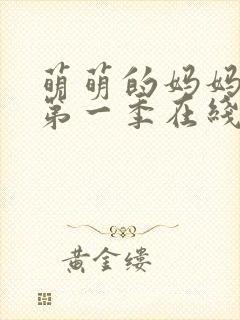 萌萌的妈妈
第一季在线
黄金缕